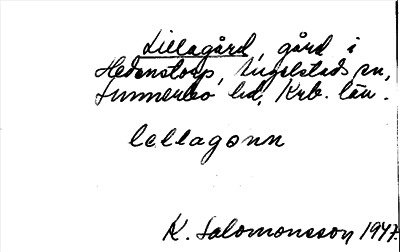 Lillagård, gård i
Hedenstorp, Angelstads sn,
Sunnerbo hd, Krb. län.
lellagonn
K. Salomonsson 1947.